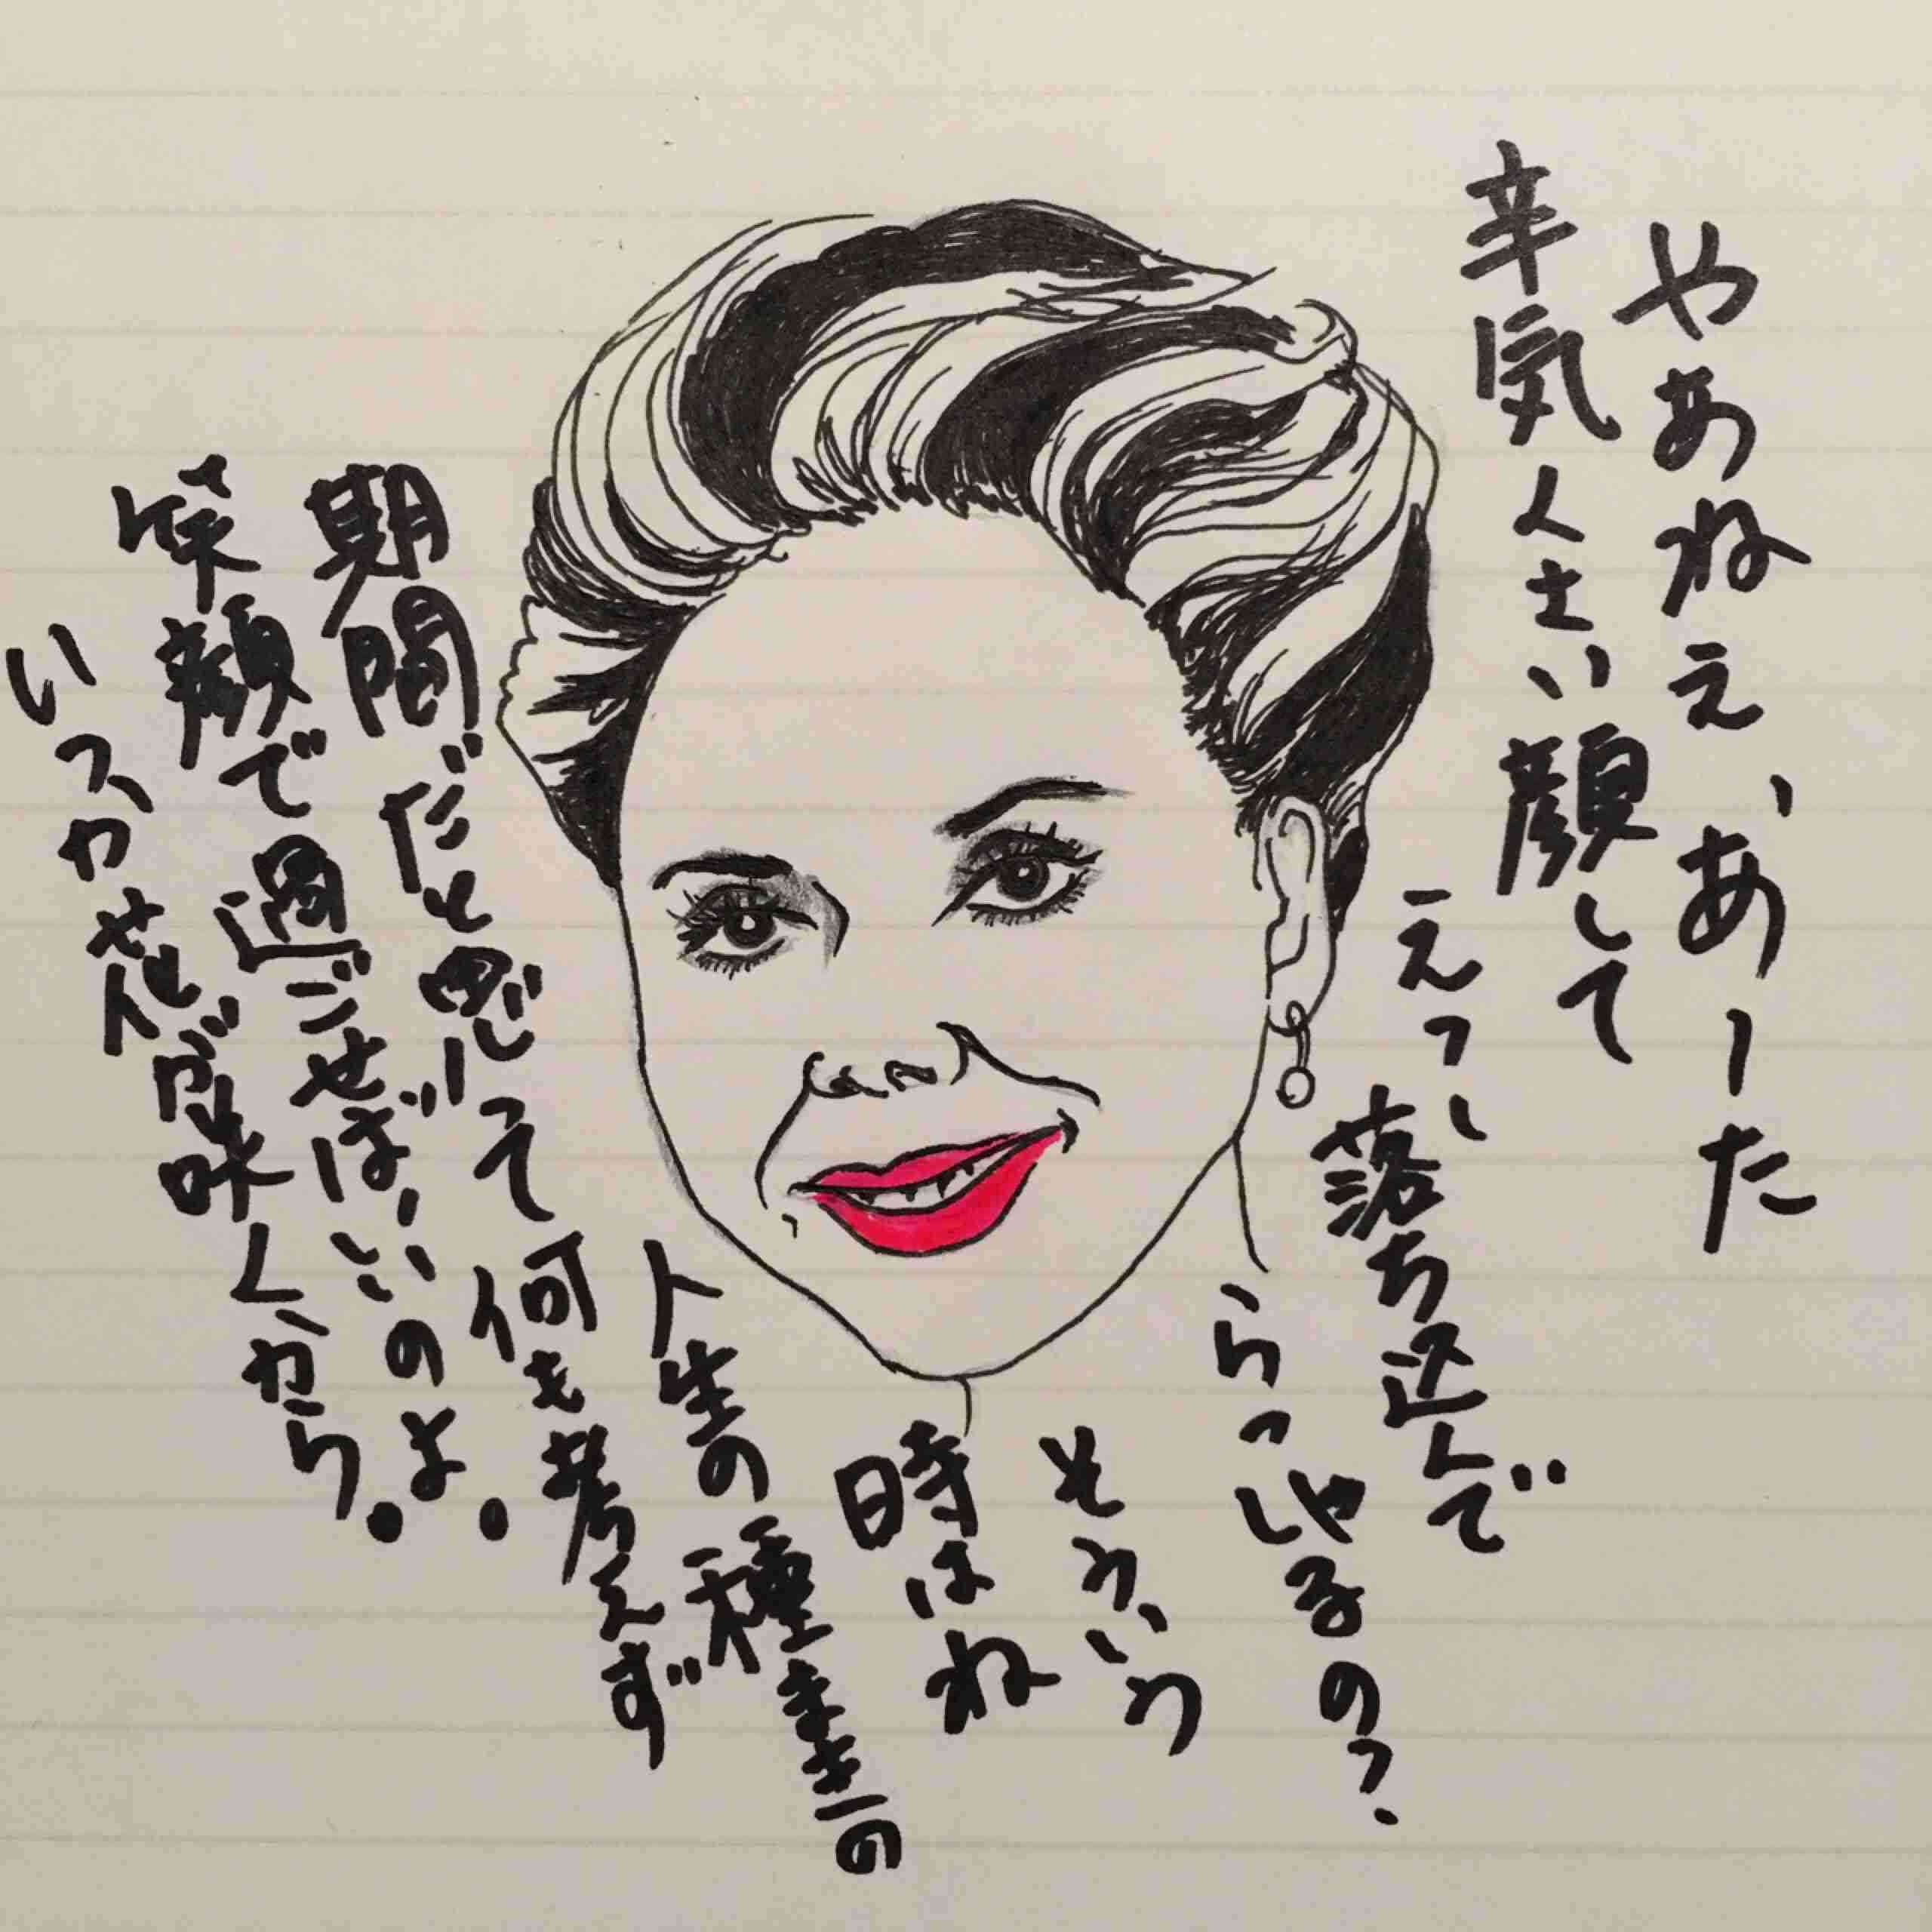 やあねえ、あーた
辛気くさい顔して
えっ、落ち込んで
らっしゃるの?
そういう
時はね
人生の種まきの
期間だと思って何も考えず
顔で過ごせば、いいのよ。
いつか花が咲くから。